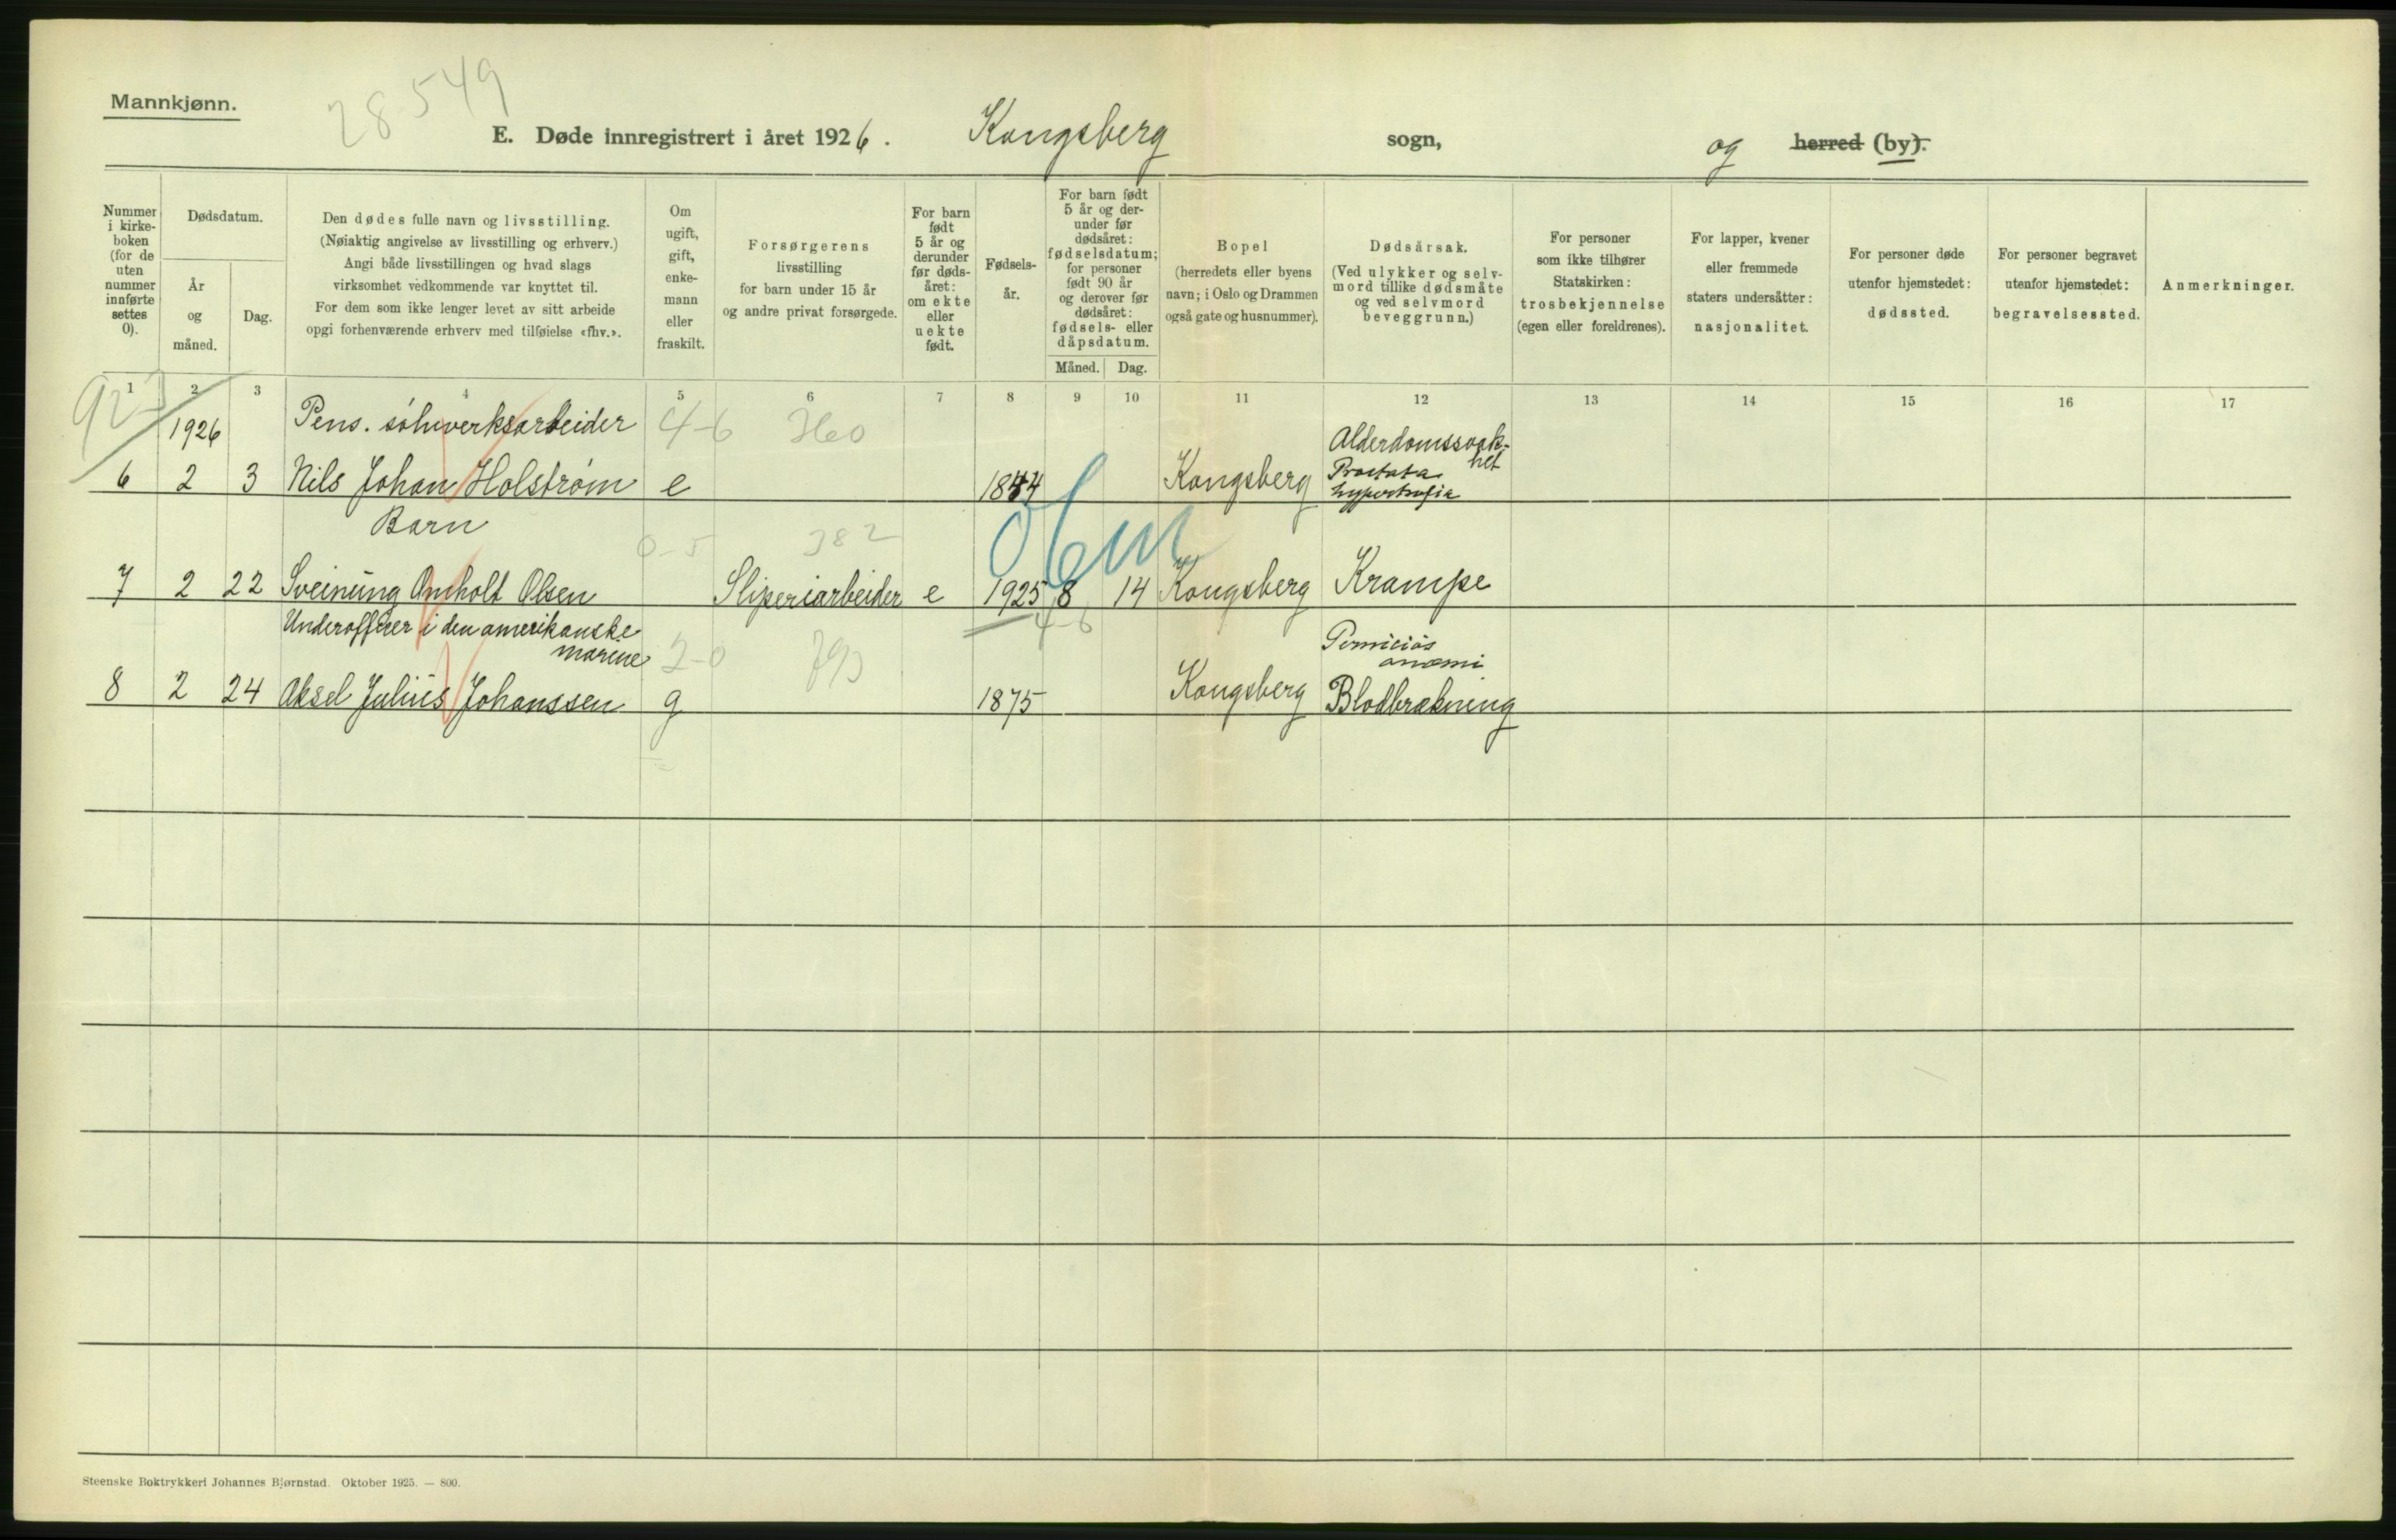 Mannkjønn.
28549
E. Døde innregistrert i året 1926. Kongsberg sogn, og herred (by).
Nummer i kirke- boken (for de uten nummer innførte settes 0).
Dødsdatum.
År og måned.
Dag.
Den dødes fulle navn og livsstilling.
(Nøiaktig angivelse av livsstilling og erhverv.)
Angi både livsstillingen og hvad slags
virksomhet vedkommende var knyttet til.
For dem som ikke lenger levet av sitt arbeide
opgi forhenværende erhverv med tilføielse «fhv.».
Om ugift, gift, enke- mann eller fraskilt.
Forsørgerens
livsstilling
for barn under 15 år
og andre privat forsørgede.
For barn født 5 år og derunder før døds- året: om ekte eller uekte født.
Fødsels- år.
For barn født 5 år og der- under før dødsåret: fødselsdatum; for personer født 90 år og derover før dødsåret: fødsels- eller dåpsdatum.
Måned. Dag.
Bopel
(herredets eller byens
navn; i Oslo og Drammen
også gate og husnummer).
Dødsårsak.
(Ved ulykker og selv-
mord tillike dødsmåte
og ved selvmord
beveggrunn.)
For personer
som ikke tilhører
Statskirken:
trosbekjennelse
(egen eller foreldrenes).
For lapper, kvener
eller fremmede
staters undersåtter:
nasjonalitet.
For personer døde
utenfor hjemstedet:
dødssted.
For personer begravet
utenfor hjemstedet:
begravelsessted.
Anmerkninger.
1 2 3 4 5 6 7 8 9 10 11 12 13 14 15 16 17
1926 Pens. sølvverksarbeider 4-6 Alderdomssvak-
het
6 2 3 Nils Johan Holstrøm e 1844 Kongsberg Prostata
hypertrofia
Barn 0-5 382
7 2 22 Sveinung Omholt Olsen Sliperiarbeider e 1925 8 14 Kongsberg Krampe
4-6
Underofficer i den amerikanske
marine 2-0 793 Perniciøs
anæmi
8 2 24 Aksel Julius Johanssen g 1875 Kongsberg Blodbrækning
Steenske Boktrykkeri Johannes Bjørnstad. Oktober 1925. — 800.